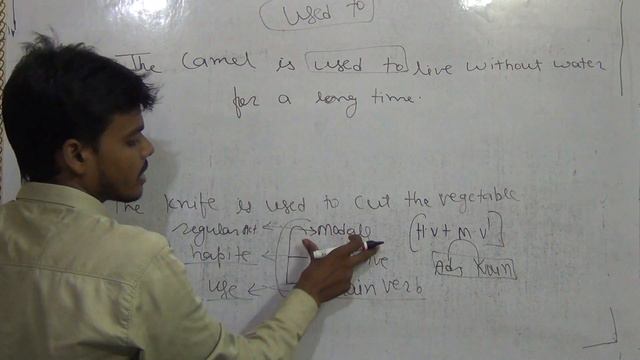 used to
The Camel is used to live without water
for a long time.
The knife is used to cut the vegetable
regular Act modals (H.v + m.v)
hapite ive Adj Noun
use main verb